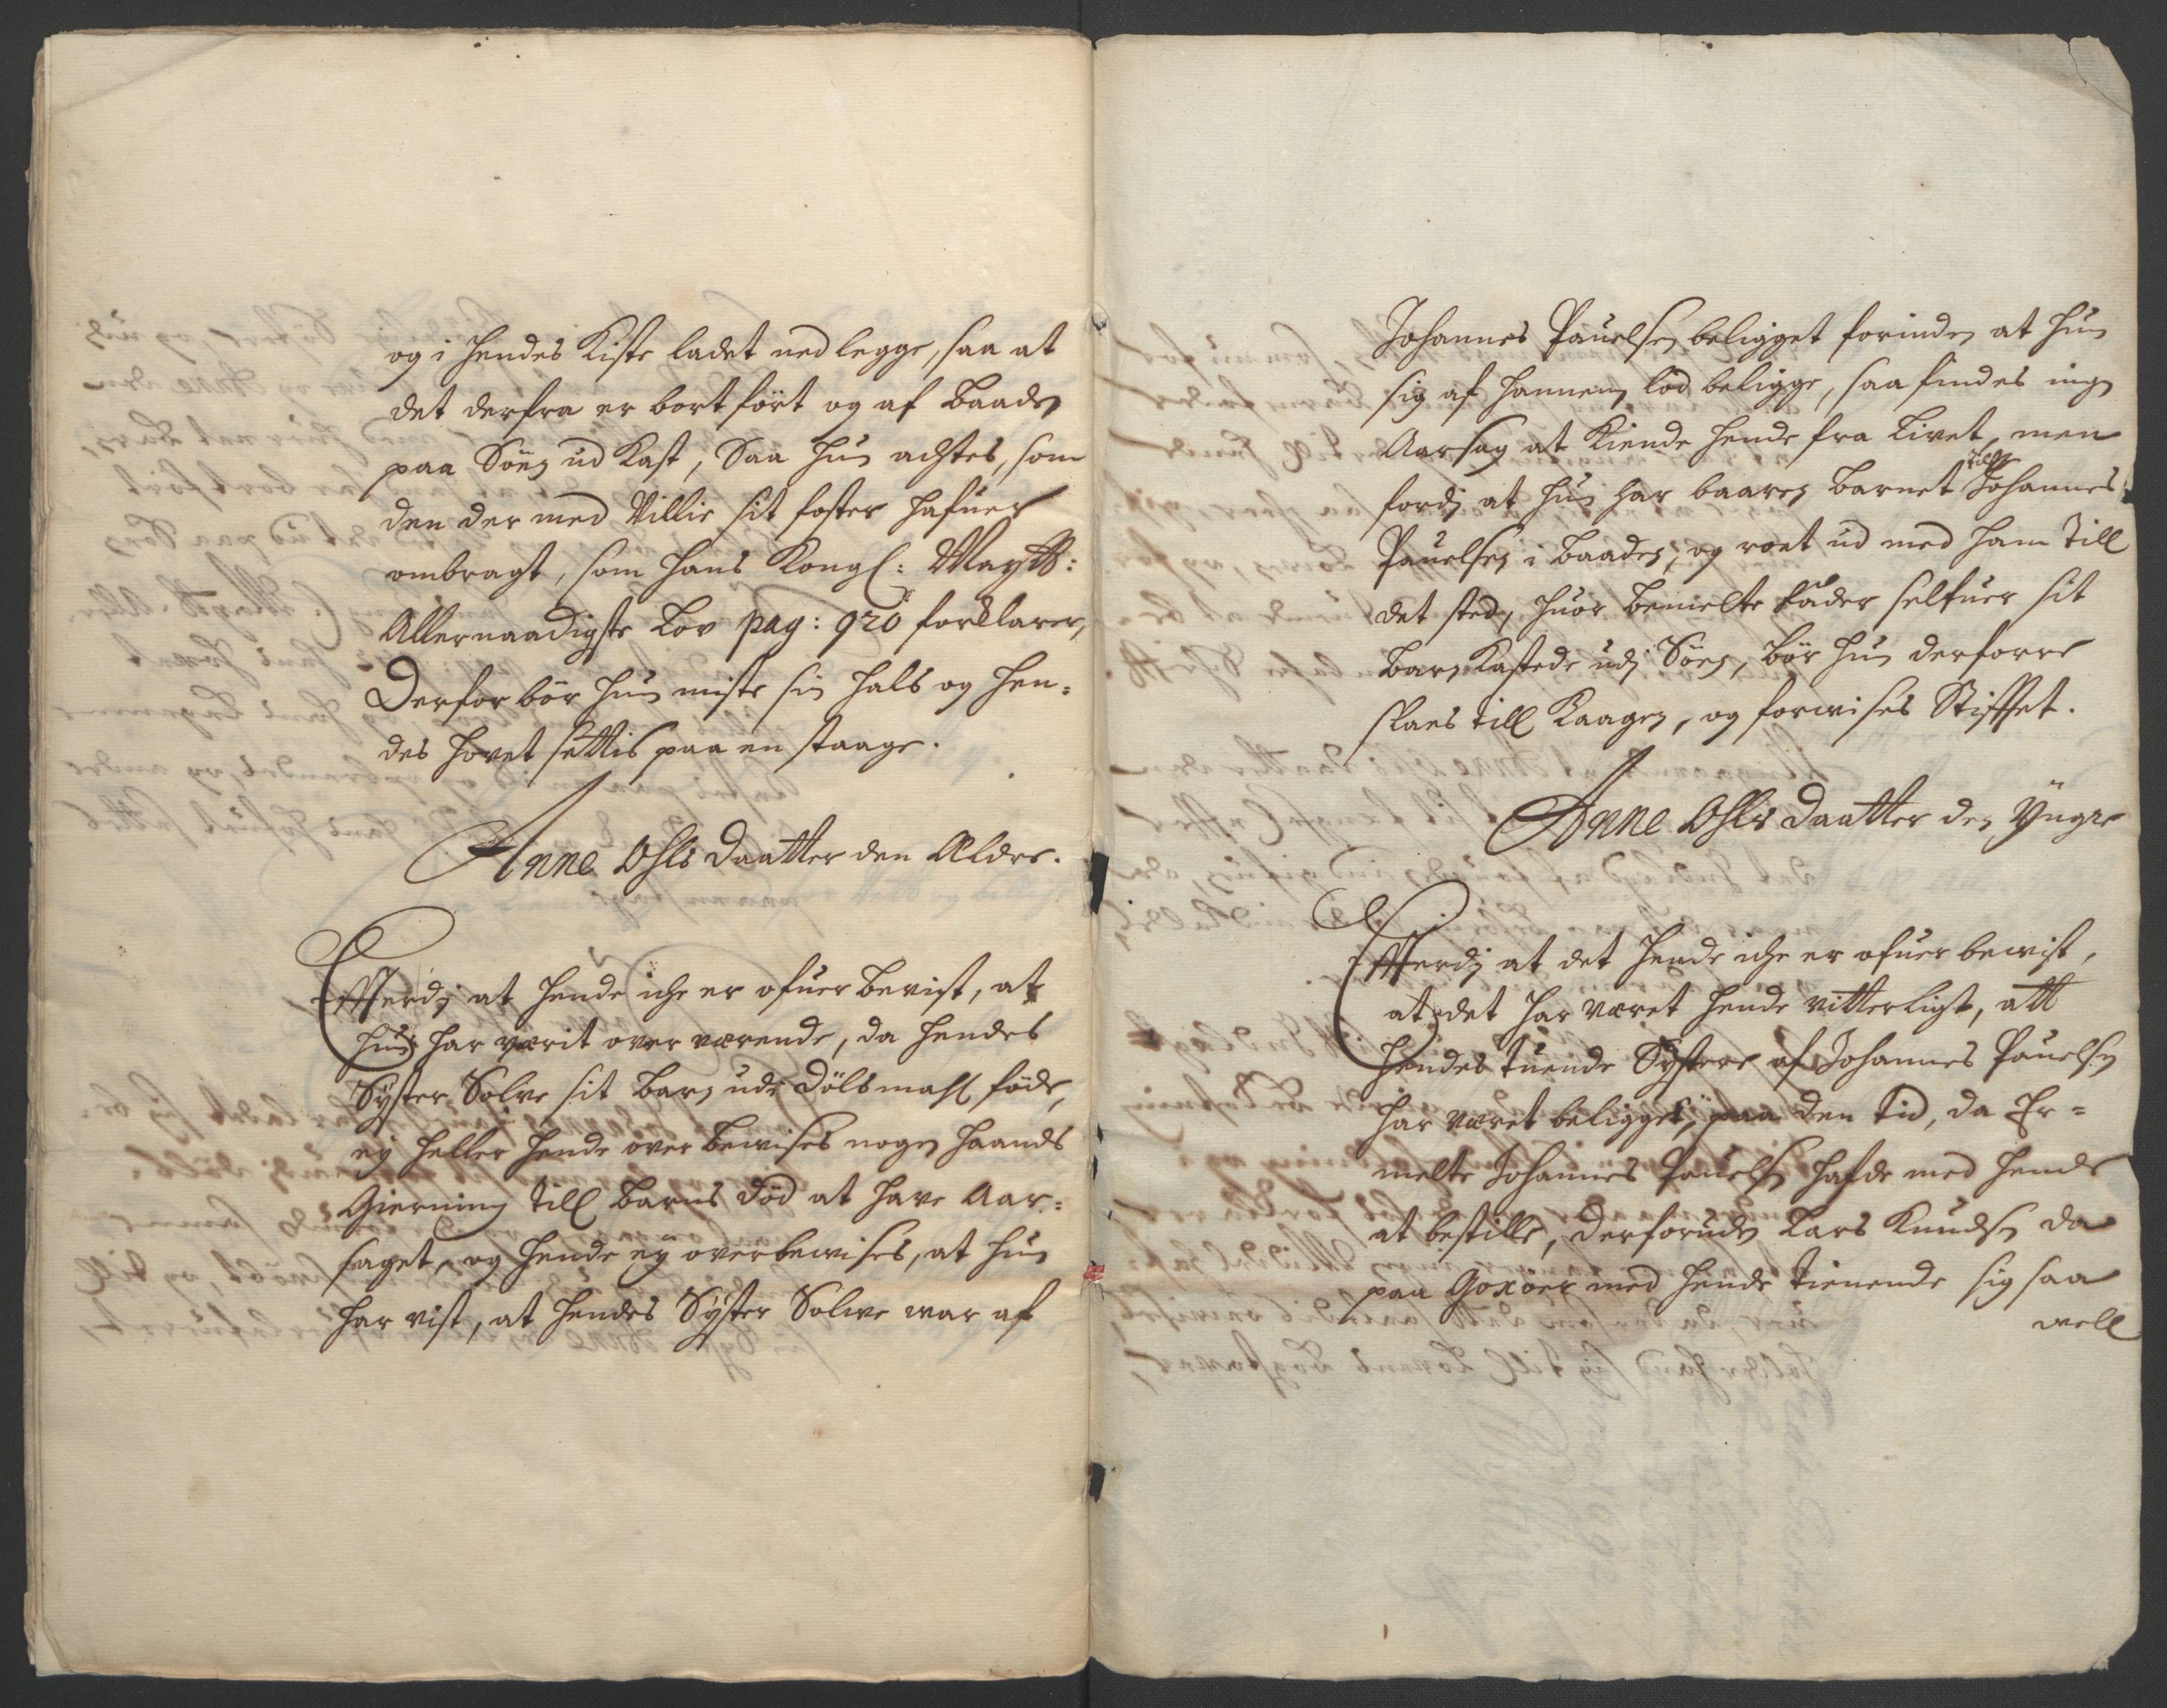 og i hendes Kiste ladet nedlegge, saa at
det derfra er bortfört og af Baaden
paa Söen ud Kast, Saa hun achtes, som
den der med Villie sit foster hafuer
ombragt, som hans Kongl: Maÿtt:
Allernaadigste Lov pag: 920 forklarer,
Derfor bör hun miste sin hals og hen=
des hovet settis paa en staage.
Anne Ohls Daatter den Ældre.
Efterdj at hende iche er ofuer bevist, at
hun har værit over værende, da hendes
Syster Solve sit barn udj dölsmahl föde,
eÿ heller hende over bewises nogen haands
Gierning till barns död at have Aar=
saget, og hende eÿ overbewises, at hun
har vist, at hendes Sÿster Solwe war af
Johannes Pauelsen beligget forinden at hun
sig af hannem lod beligge, saa findes ingen
Aarsag at Kiende hende fra Livet, men
fordj at hun har baaren barnet till Johannes
Pauelsen i baaden, og roet ud med ham till
det sted, huor bemelte fader selfuer sit
barn Kastede udj Söen, bör hun derforre
slaes till Kaagen, og forwises Stifftet.
Anne Ohls Daatter den Ÿngre
Efterdj at det hende iche er ofuer bewist,
at det har været hende vitterligt, att
hendes tuende Sÿstere af Johannes Pauelsen
har været beligget, paa den tid, da Er=
melte Johannes Pauelsen hafde med hende
at bestille, derforuden Lars Knudsen da
paa Goxöer med hende tienende sig saa
well